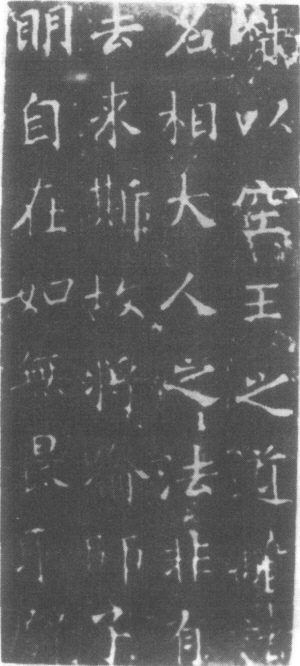 以空王之道離諸
名相大人之法非自
去來斯故將喻師子
明自在如無畏